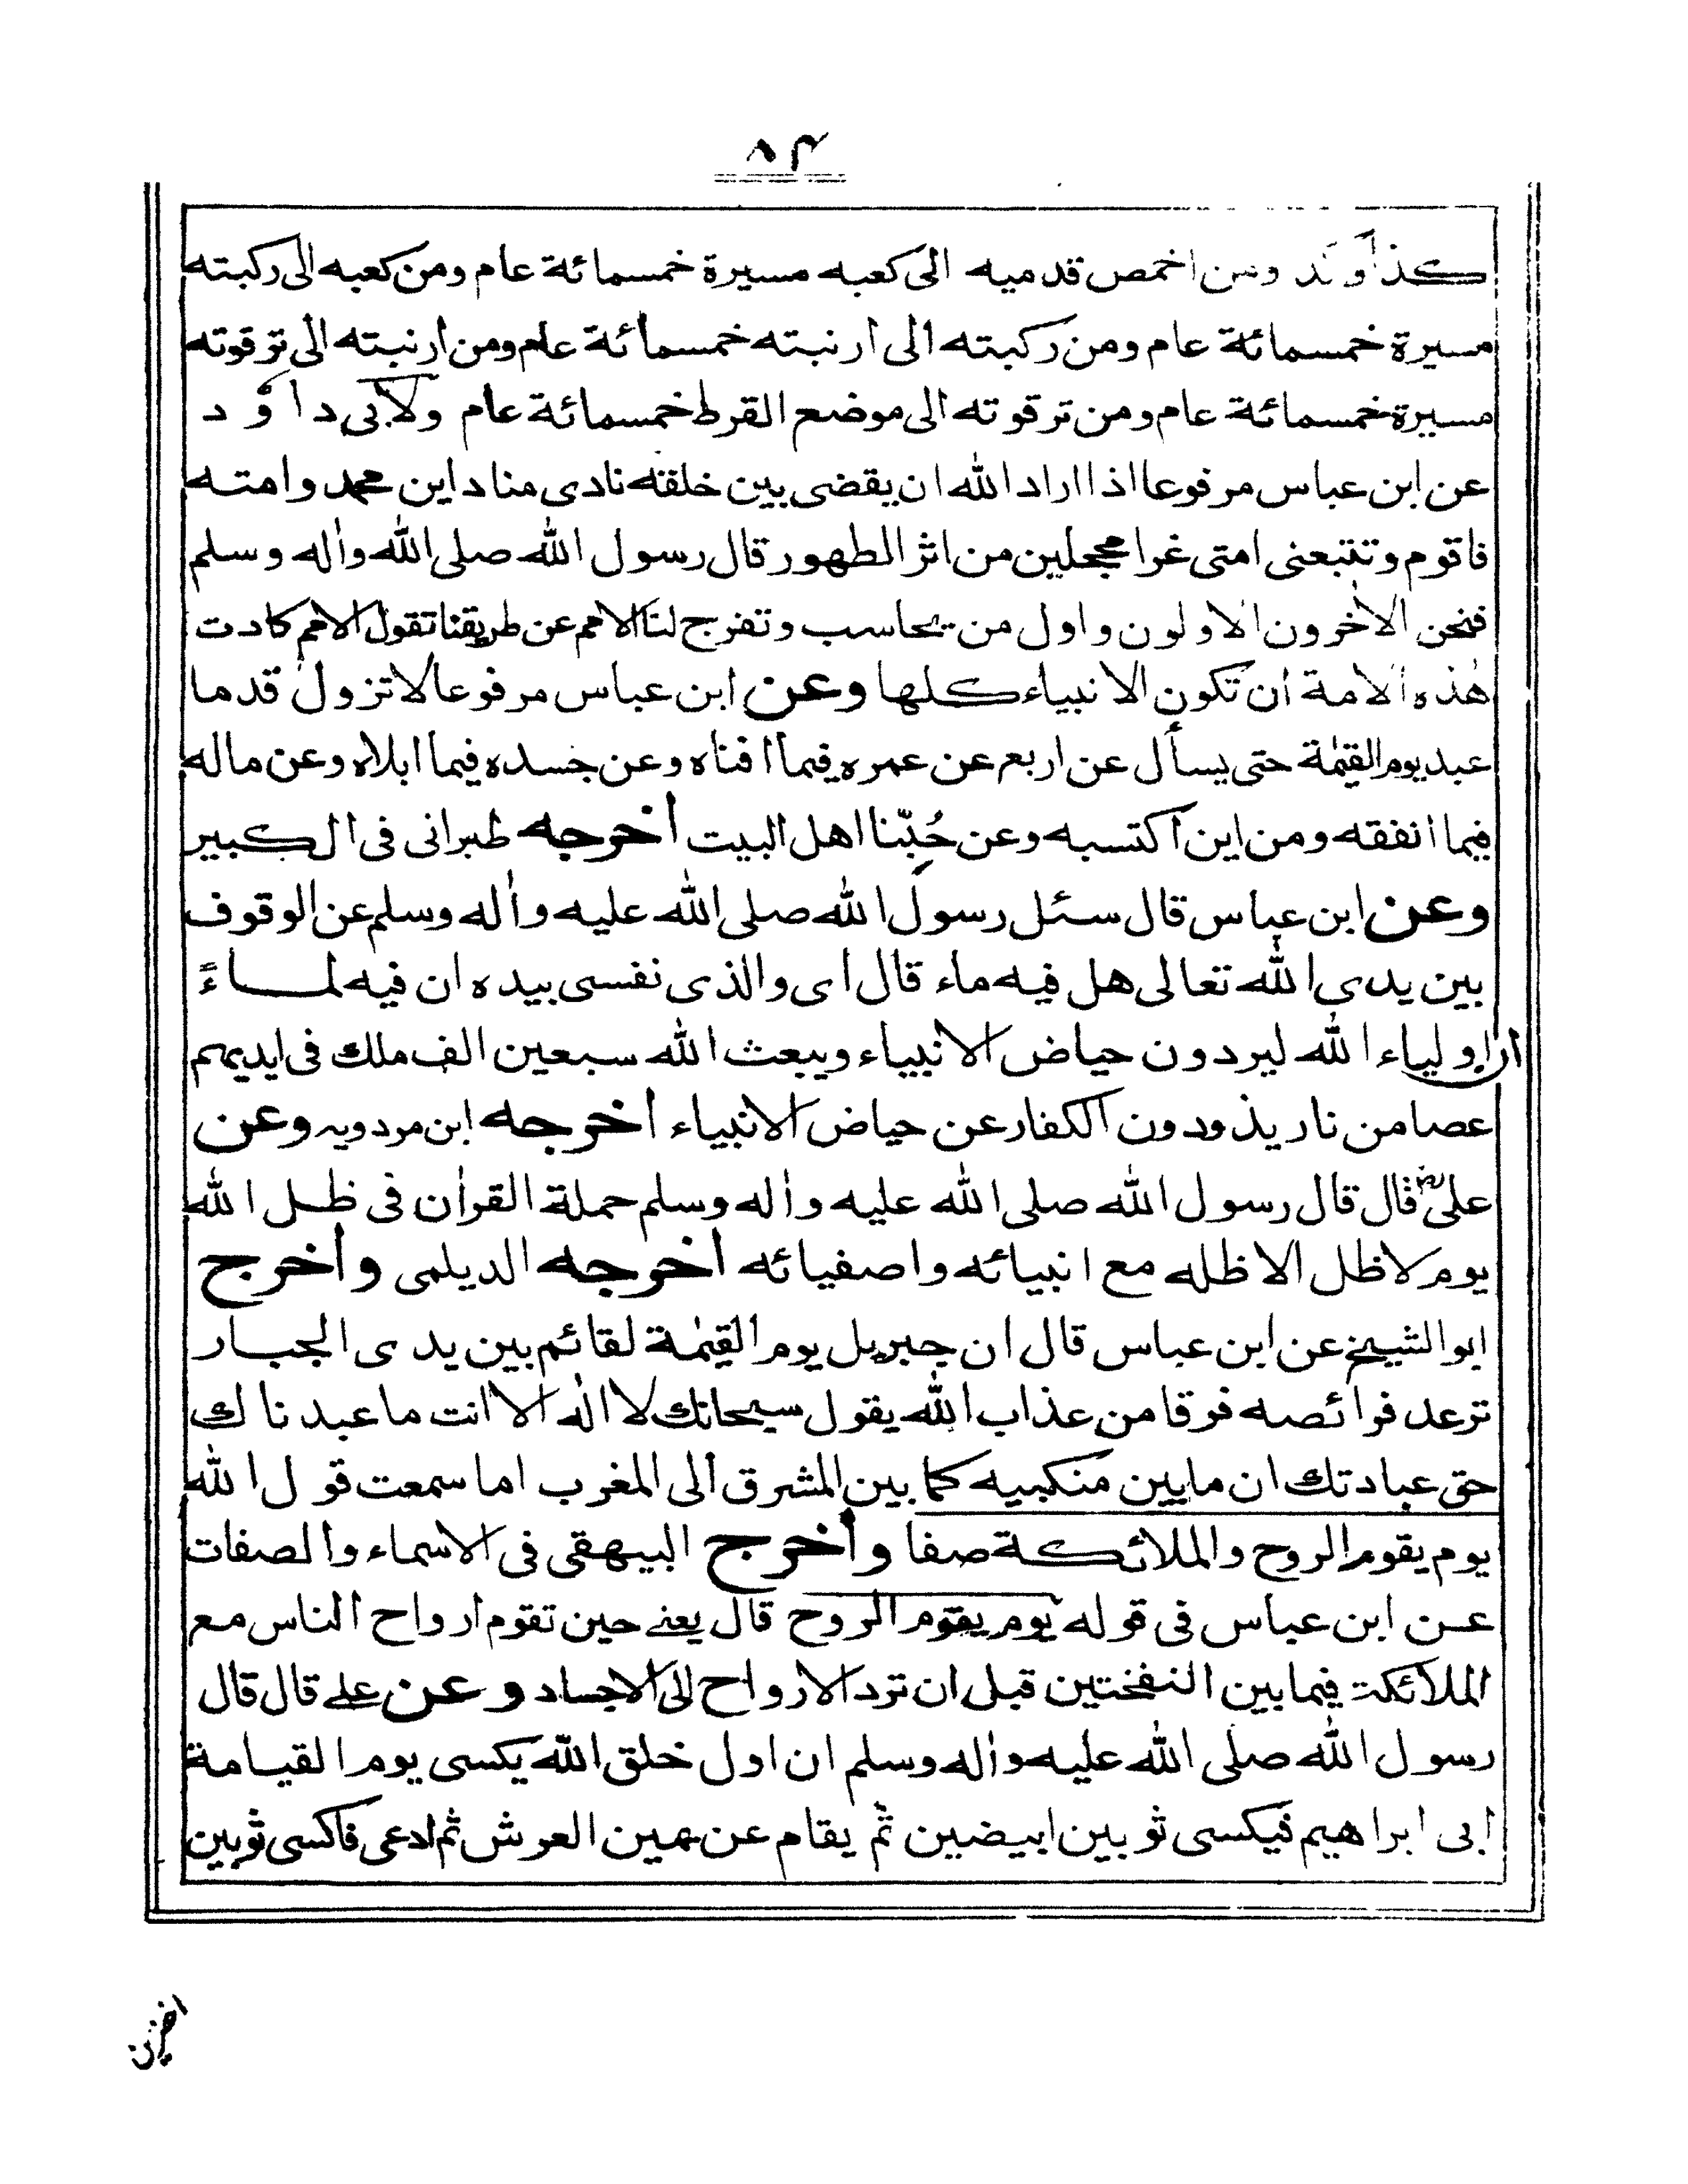 ٨٤
ومن اخمص قدميه الى كعبه مسيرة خمسمائة عام ومن كعبه الى ركبته
مسيرة خمسمائة عام ومن ركبته الى ارنبته خمسمائة عام ومن ارنبته الى ترقوته
مسيرة خمسمائة عام ومن ترقوته الى موضع القرط خمسمائة عام ولابى داؤد
عن ابن عباس مرفوعا اذا اراد الله ان يقضى بين خلقه نادى مناد اين محمد وامته
فاقوم وتتبعنى امتى غرا محجلين من اثر الطهور قال رسول الله صلى الله واٰله وسلم
فنحن الاٰخرون الاولون واول من يحاسب وتفرج لنا الامم عن طريقنا تقول الامم كادت
هٰذه الامة ان تكون الانبياء كلها وعن ابن عباس مرفوعا لا تزول قدما
عبد يوم القيٰمة حتى يسأل عن اربع عن عمره فيما افناه وعن جسده فيما ابلاه وعن ماله
فيما انفقه ومن اين اكتسبه وعن حُبِّنا اهل البيت اخرجه طبرانى فى الكبير
وعن ابن عباس قال سئل رسول الله صلى الله عليه واٰله وسلم عن الوقوف
بين يدى الله تعالى هل فيه ماء قال اى والذى نفسى بيده ان فيه لماءً
ان اولياء الله ليردون حياض الانبياء ويبعث الله سبعين الف ملك فى ايديهم
عصا من نار يذودون الكفار عن حياض الانبياء اخرجه ابن مردويه وعن
علىؓ قال قال رسول الله صلى الله عليه واٰله وسلم حملة القراٰن فى ظل الله
يوم لا ظل الا ظله مع انبيائه واصفيائه اخرجه الديلمى واخرج
ابو الشيخ عن ابن عباس قال ان جبريل يوم القيٰمة لقائم بين يدى الجبار
ترعد فرائصه فرقا من عذاب الله يقول سبحانك لا اله الا انت ما عبدناك
حق عبادتك ان ما بين منكبيه كما بين المشرق الى المغرب اما سمعت قول الله
يوم يقوم الروح والملائكة صفا واخرج البيهقى فى الاسماء والصفات
عن ابن عباس فى قوله يوم يقوم الروح قال يعنے حين تقوم ارواح الناس مع
الملائكة فيما بين النفختين قبل ان ترد الارواح الى الاجساد وعن علے قال قال
رسول الله صلى الله عليه واٰله وسلم ان اول خلق الله يكسى يوم القيامة
ابى ابراهيم فيكسى ثوبين ابيضين ثم يقام عن يمين العرش ثم ادعى فاكسى ثوبين